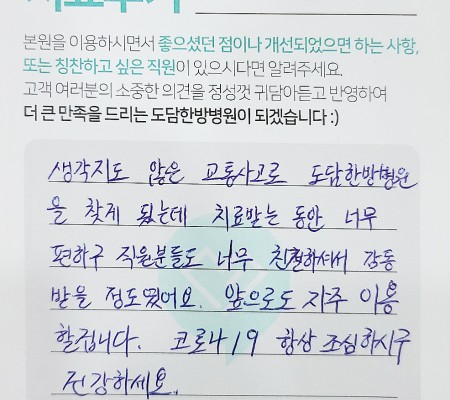 치료후기
본원을 이용하시면서 좋으셨던 점이나 개선되었으면 하는 사항,
또는 칭찬하고 싶은 직원이 있으시다면 알려주세요.
고객 여러분의 소중한 의견을 정성껏 귀담아듣고 반영하여
더 큰 만족을 드리는 도담한방병원이 되겠습니다 :)
생각지도 않은 교통사고로 도담한방병원
을 찾게 됬는데 치료받는 동안 너무
편하구 직원분들도 너무 친절하셔서 감동
받을 정도였어요. 앞으로도 자주 이용
할겁니다. 코로나19 항상 조심하시구
건강하세요.